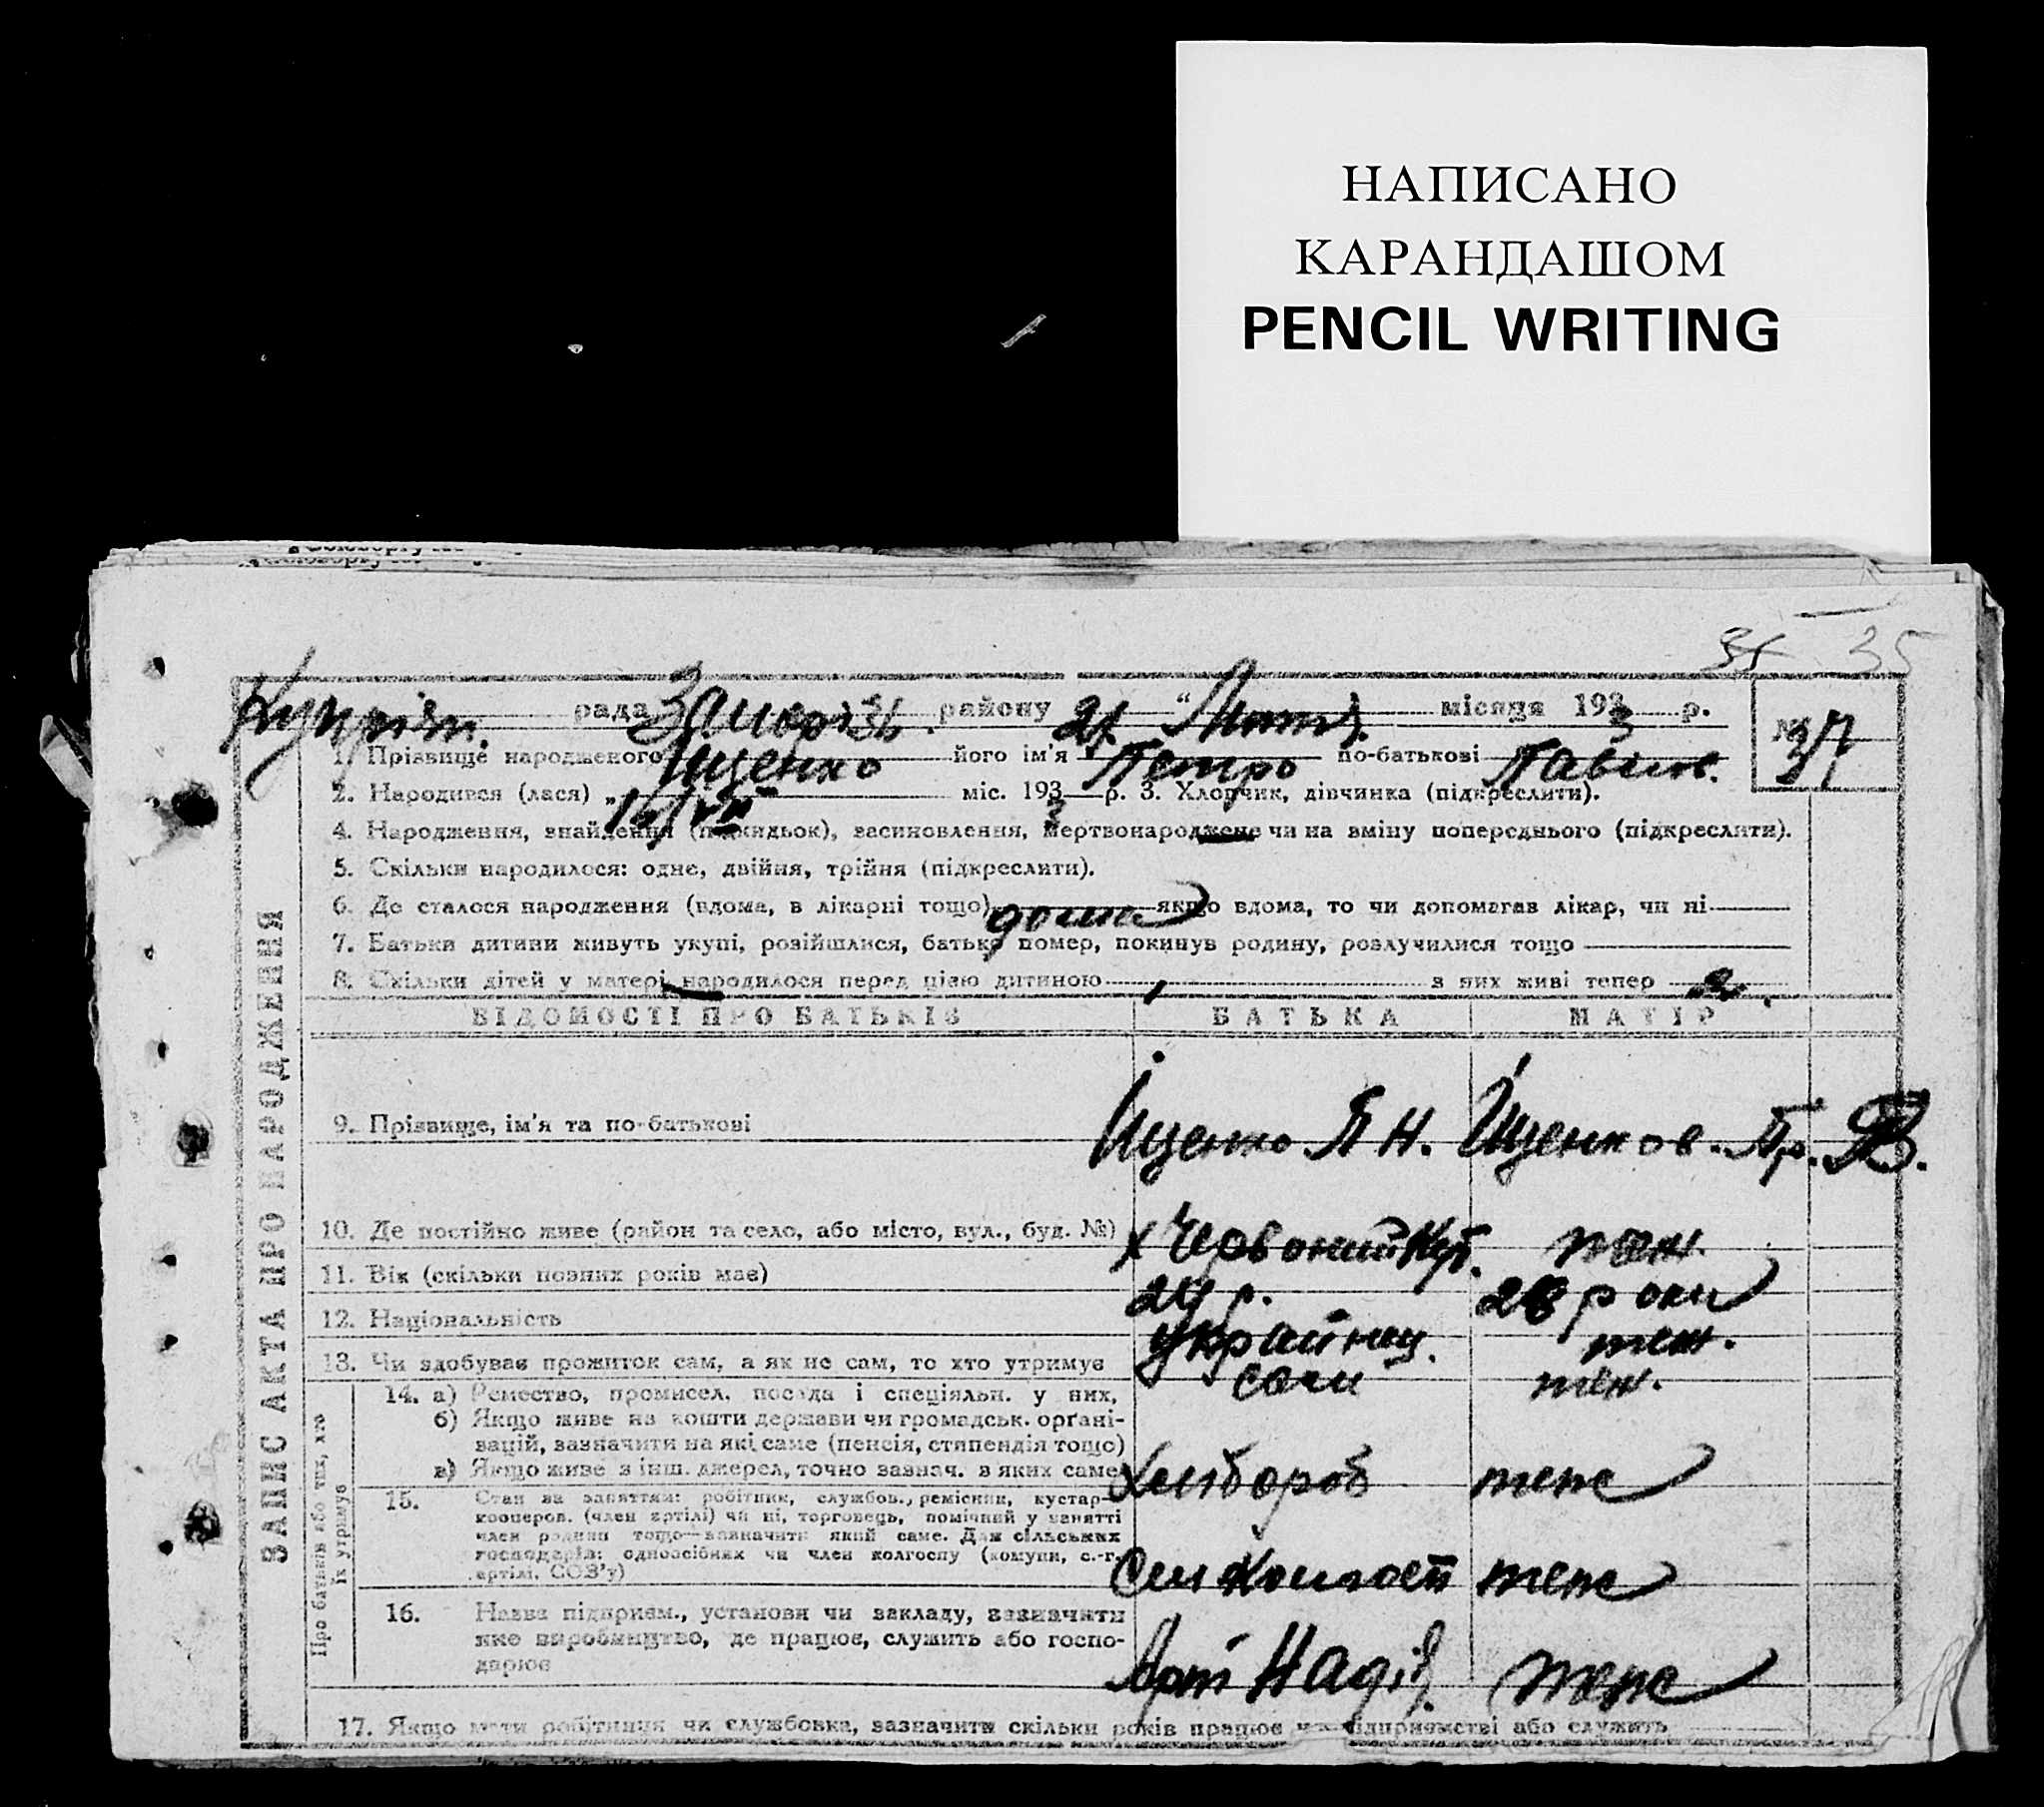 НАПИСАНО
КАРАНДАШОМ
PENCIL WRITING
35 35
рада району 21 " місяця 1933 р. № 37
1. Прізвище народженого Іщенко його ім'я Петро по-батькові Павлов.
2. Народився (лася) " міс. 1933 р. 3. Хлопчик, дівчинка (підкреслити).
4. Народження, знайдення (підкидьок), засиновлення, мертвонароджене чи на зміну попереднього (підкреслити).
5. Скільки народилося: одне, двійня, трійня (підкреслити).
6. Де сталося народження (вдома, в лікарні тощо) дома якщо вдома, то чи допомагав лікар, чи ні
7. Батьки дитини живуть укупі, розійшлися, батько помер, покинув родину, розлучилися тощо
8. Скільки дітей у матері народилося перед цією дитиною 1 з них живі тепер
ВІДОМОСТІ ПРО БАТЬКІВ БАТЬКА МАТІР
9. Прізвище, ім'я та по-батькові Іщенко П Н. Іщенков. Пр.
10. Де постійно живе (район та село, або місто, вул., буд. №) х Червоний Кут. теж.
11. Вік (скільки повних років має) 24 р. 28 роки
12. Національність українец. теж.
13. Чи здобуває прожиток сам, а як не сам, то хто утримує сам теж.
14. а) Ремество, промисел, посада і спеціяльн. у них,
б) Якщо живе на кошти держави чи громадськ. орґані-
зацій, зазначити на які саме (пенсія, стипендія тощо)
в) Якщо живе з інш. джерел, точно зазнач. з яких саме Хлибороб теж
15. Стан за заняттям: робітник, службов., ремісник, кустар-
кооперов. (член артілі) чи ні, торговець, помічний у занятті
член родини тощо—зазначити який саме. Для сільських
господарів: одноосібник чи член колгоспу (комуни, с.-г.
артілі, СОЗ'у) теж
16. Назва підприєм., установи чи закладу, зазначити
яке виробництво, де працює, служить або госпо-
дарює теж
17. Якщо мати робітниця чи службовка, зазначити скільки років працює на підприємстві або служить
ЗАПИС АКТА ПРО НАРОДЖЕННЯ
Про батьків або тих, хто
їх утримує